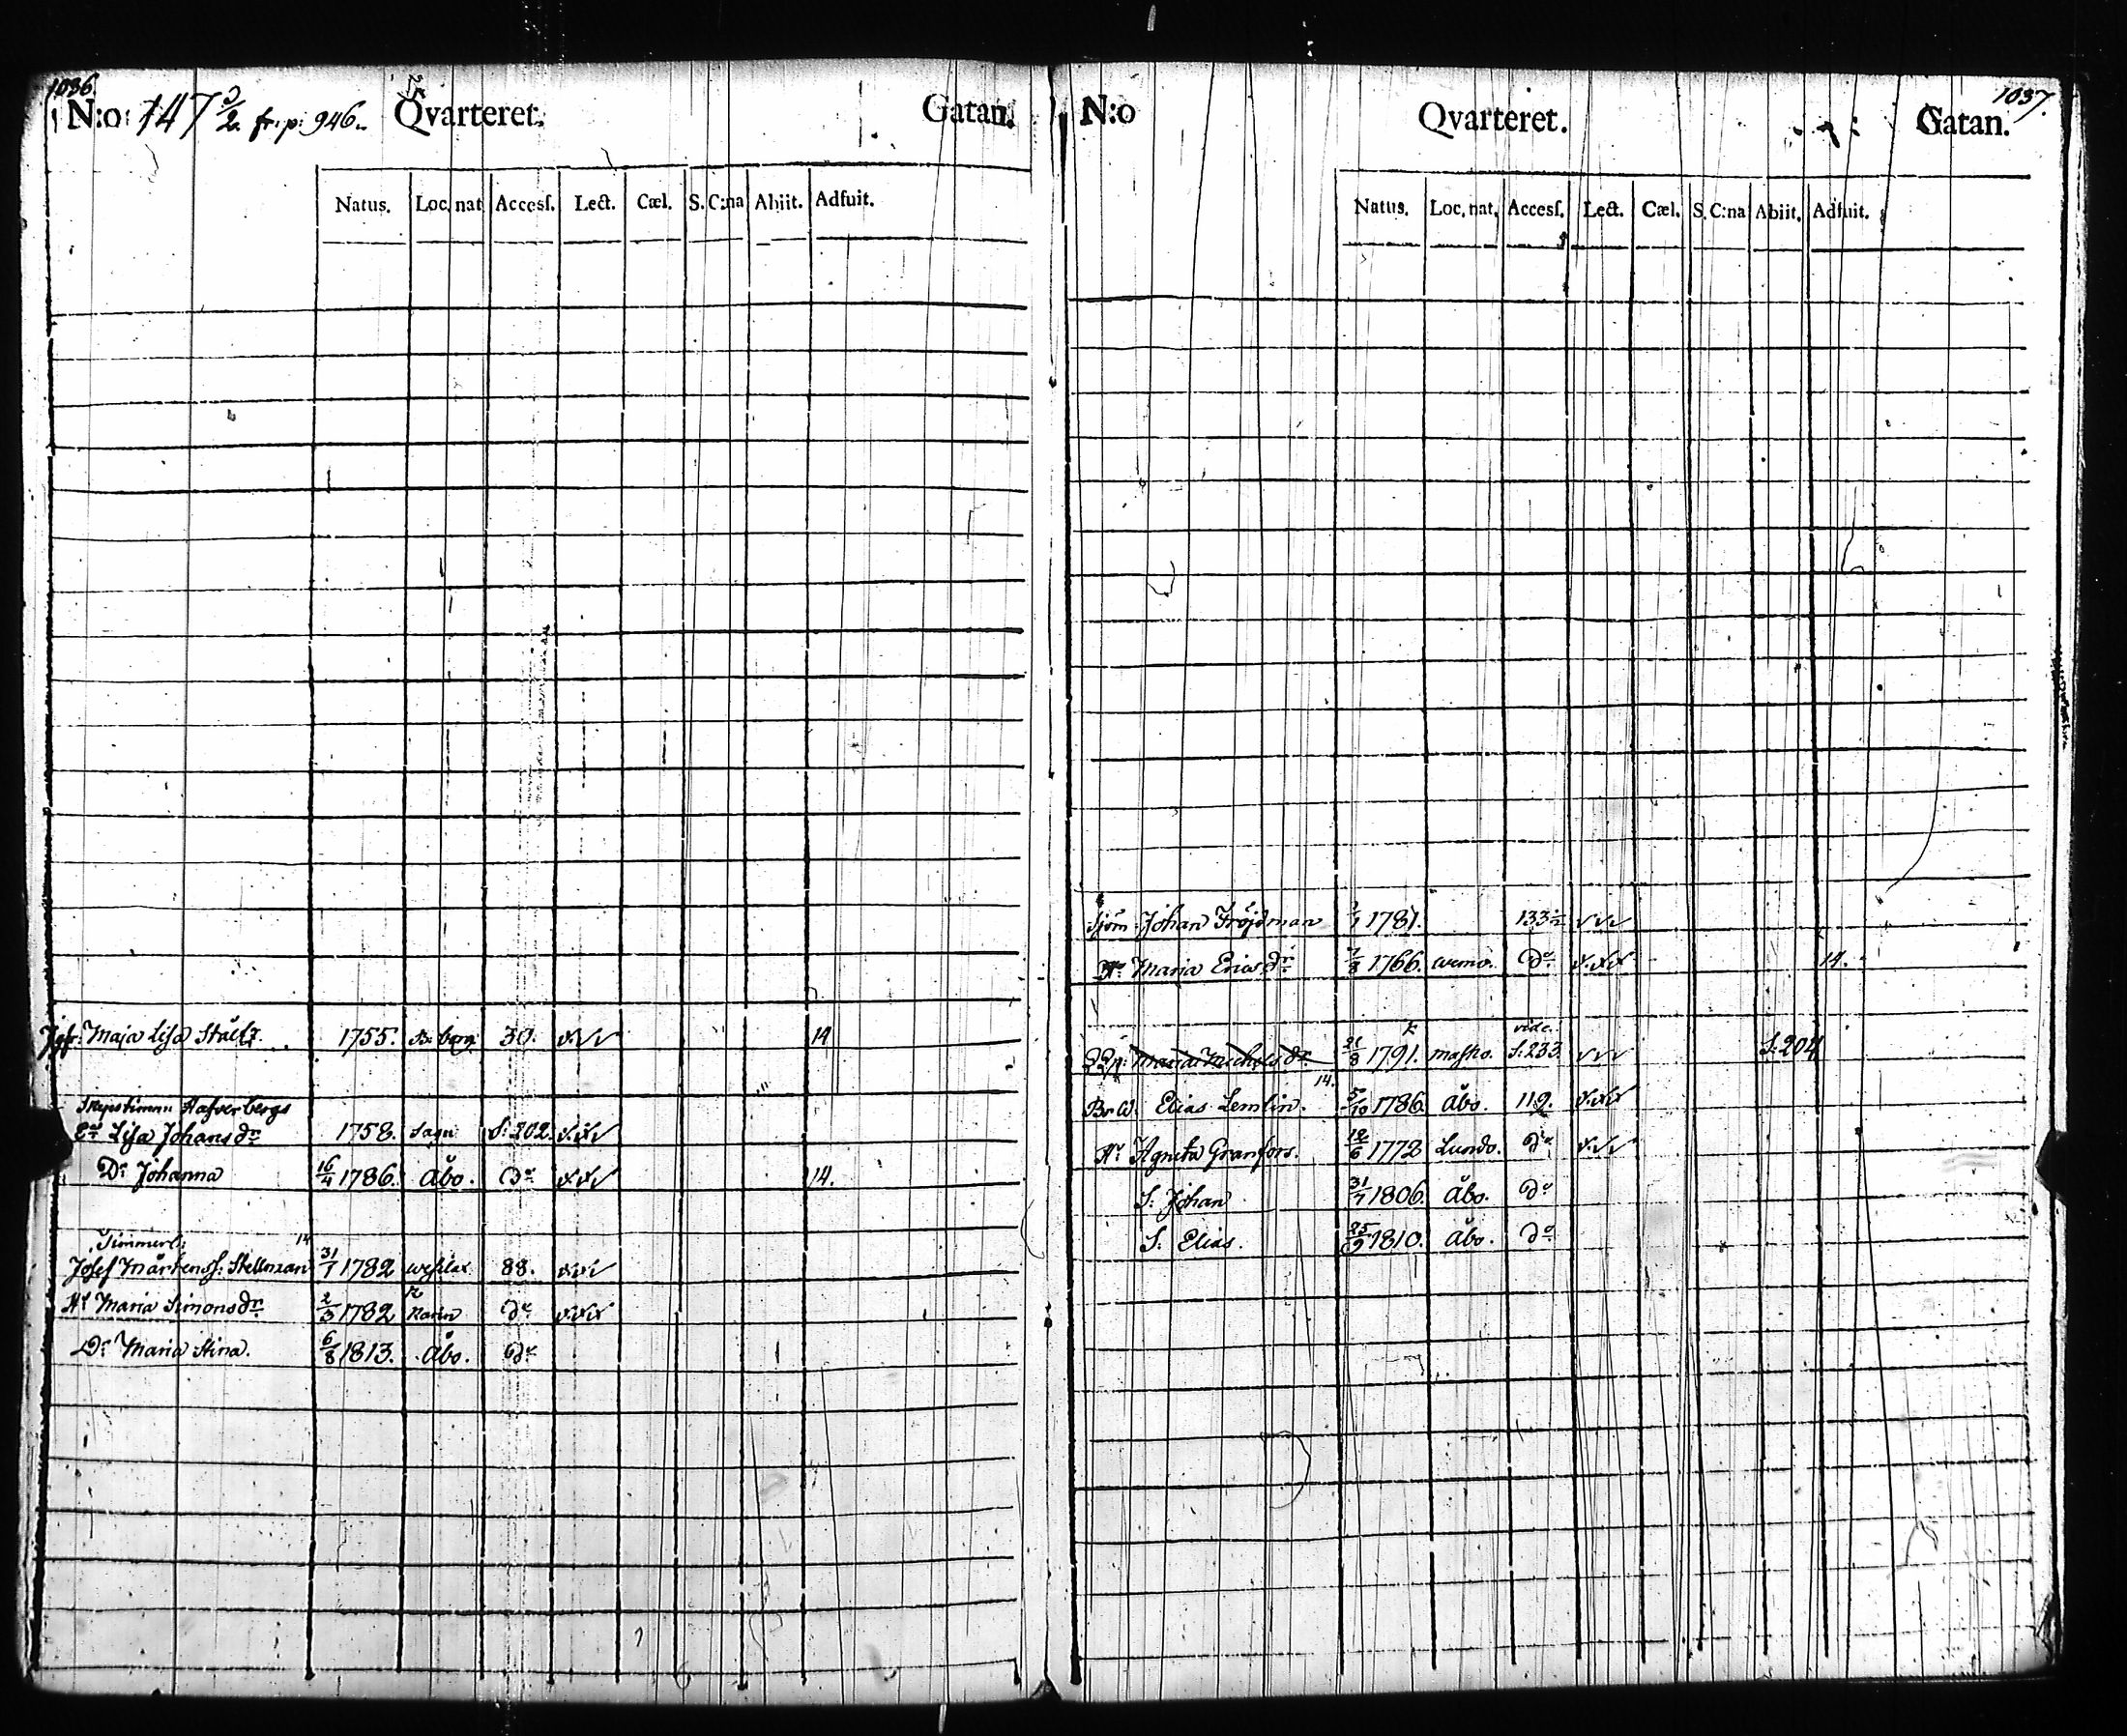 1036.
N:o 147 3/2. fr. p. 946. Qvarteret. Gatan.
Natus. Loc. nat. Accesſ. Lect. Cæl. S. C:na Abiit. Adfuit.
Jgfr. Maja Lisa 1755. 30. 14
Lisa Johans dr 1758. Sagu S: 202.
Dr Johanna 16/4 1786. Åbo. do 14.
Timmerk: 14
Josef Mårtenss: Stellman 31/1 1782 88.
Hu Maria Simons dr 2/3 1782 do
Dr Maria Stina. 6/8 1813. Åbo. do
1037.
N:o Qvarteret. Gatan.
Natus. Loc. nat. Accesſ. Lect. Cæl. S. C:na Abiit. Adfuit.
Sjöm: Johan Fröjdman 1781.
Hu Maria Erias dr 7/8 1766. wemo. do 14.
vide.
1791. S: 233. S: 204
14.
Elias Lemlin. 5/10 1786. Åbo. 119.
Hu Agneta Granfors. 18/6 1772 Lundo. do
S. Johan 31/7 1806. Åbo. do
S. Elias. 25/9 1810. Åbo. do